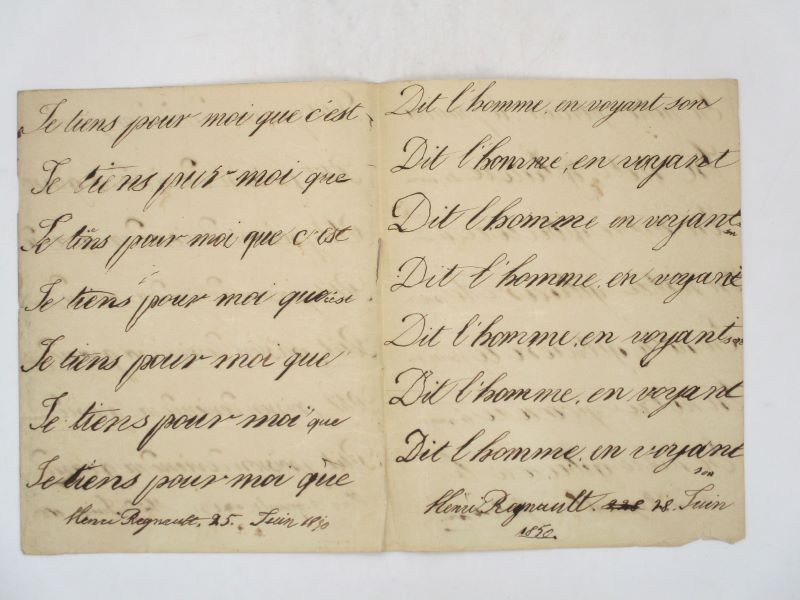 Je tiens pour moi que c'est
Je tiens pur moi que
Je tins pour moi que c'est
Je tiens pour moi que c'est
Je tiens pour moi que
Je tiens pour moi que
Je tiens pour moi que
Henri Regnault. 25. Juin 1850
Dit l'homme, en voyant son
Dit l'homme, en voyant
Dit l'homme en voyant
son
Dit l'homme, en voyant
Dit l'homme, en voyant son
Dit l'homme, en voyant
Dit l'homme, en voyant
son
Henri Regnault. 28. Juin
1850.